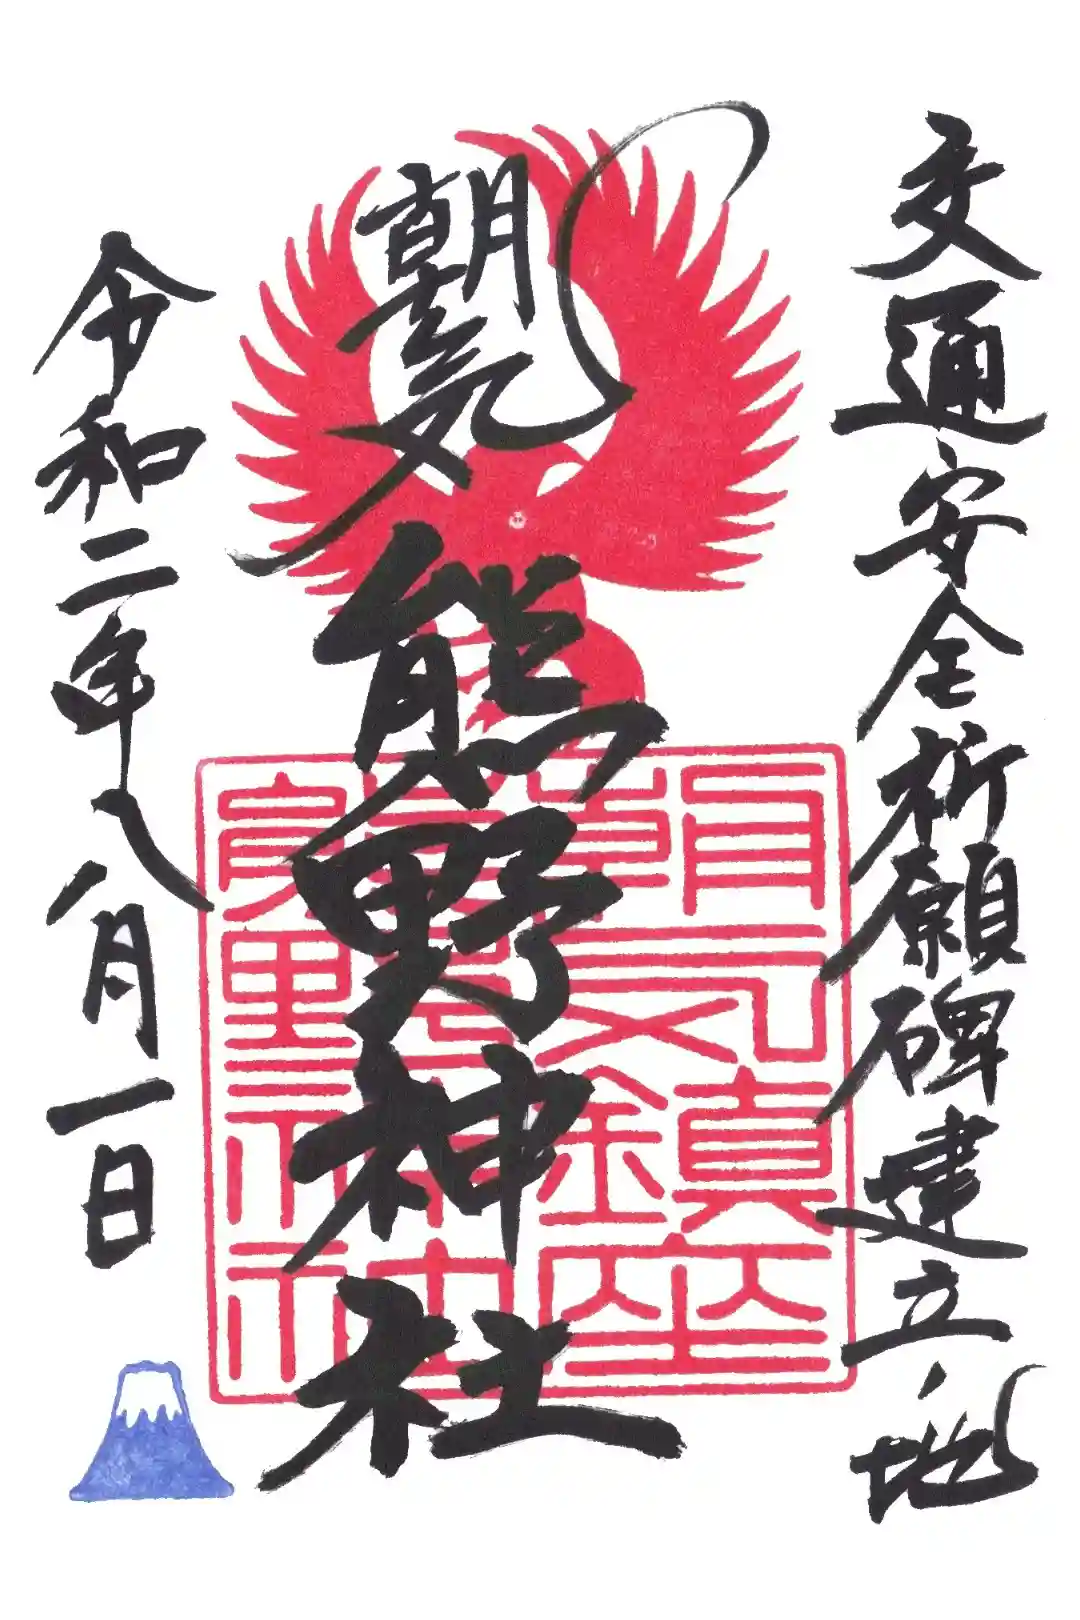 交通安全祈願碑建立ノ地
朝気熊野神社
令和二年八月一日
朝気鎮座
熊野神社